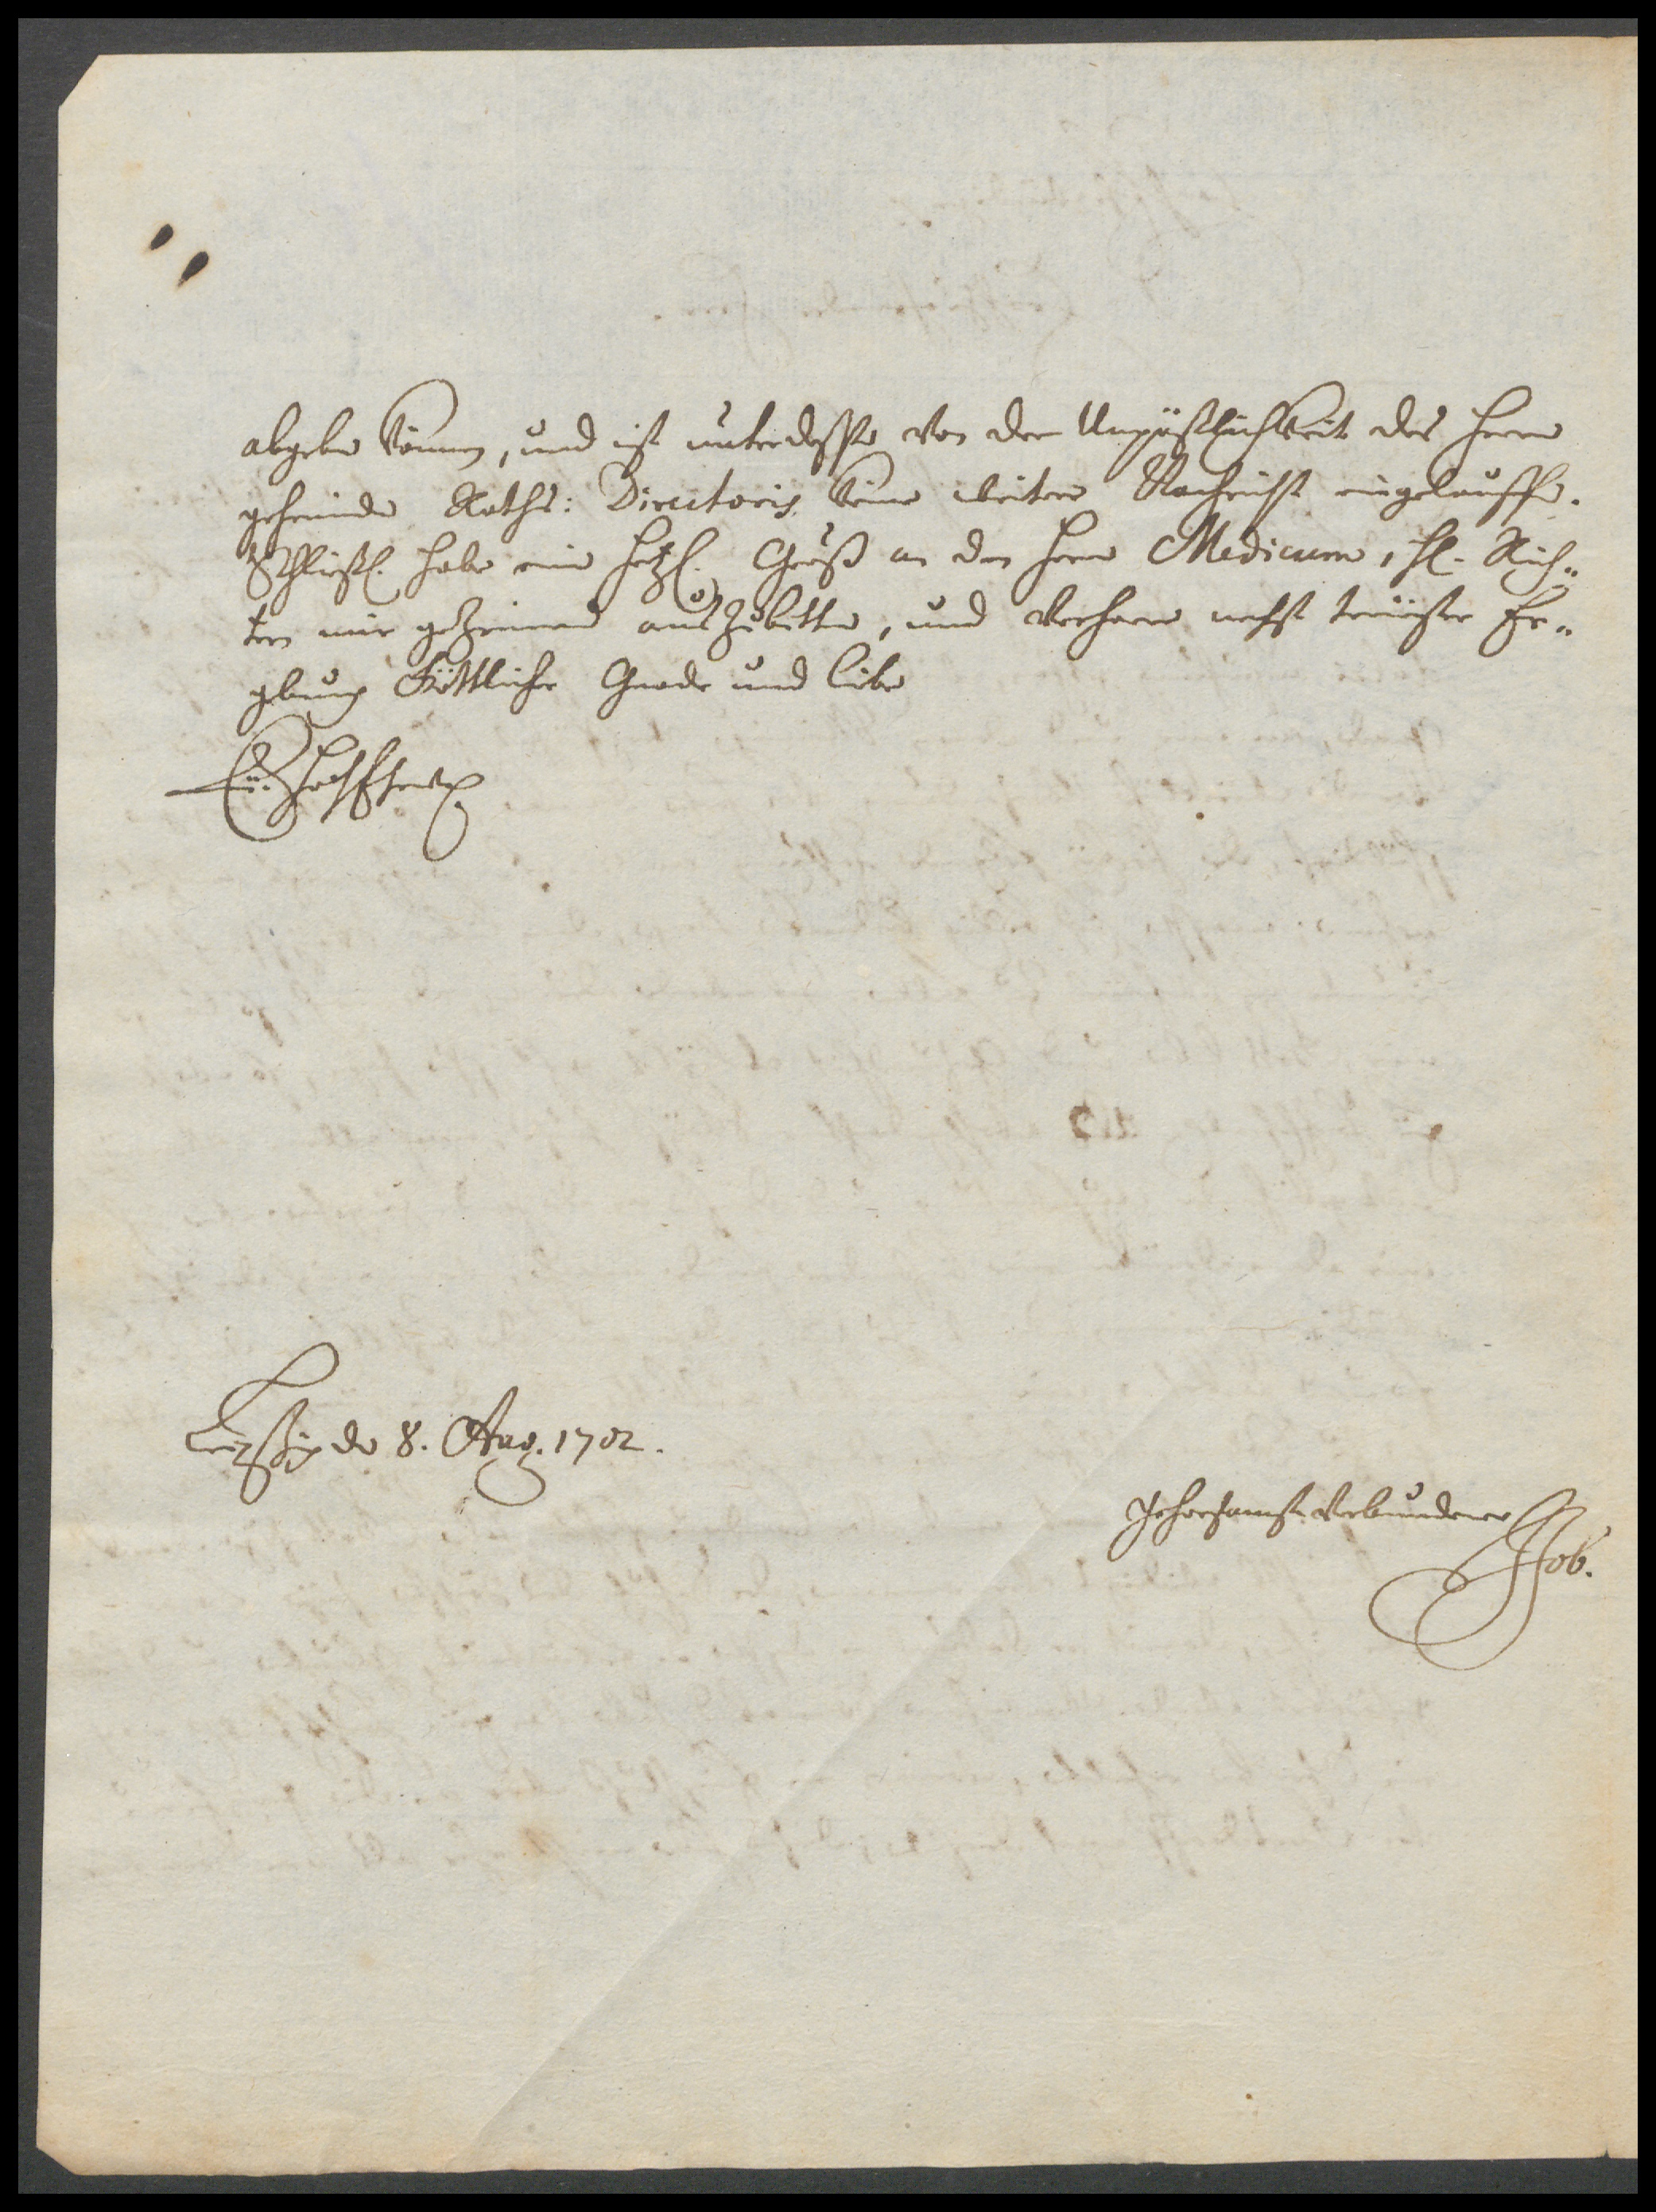 abgeben können, und ist unterdessen von der Unpäßlichkeit des Herrn
geheimden Raths: Directoris keine weitere Nachricht eingelauffen.
Schließl. habe eine hertzl. Gruß an den Herrn Medicum, H. Rich„
tern mir geziemend auszubitten, und verharre nechst treüster Er„
gebung Göttlicher Gnade und Liebe
Ew. HochEhrw.
Leipzig den 8. Aug. 1702.
gehorsamst verbundener
Job.